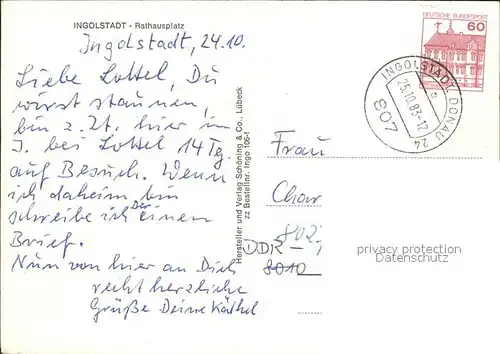 INGOLSTADT - Rathausplatz
Ingolstadt, 24.10.
Liebe Lottel, Du
wirst staunen,
bin z. Zt. hier im
J. bei Lottel 14 Tg.
auf Besuch. Wenn
ich daheim bin
schreibe ich Dir einen
Brief.
Nun von hier an Dich
recht herzliche
Grüße Deine Käthel
Hersteller und Verlag Schöning & Co., Lübeck
zz Bestellnr. Ingo 106-f
DEUTSCHE BUNDESPOST
60
INGOLSTADT, DONAU
a
25.10.83-12
24
807
Frau
Char
802
DDR-
8010
privacy protection
Datenschutz